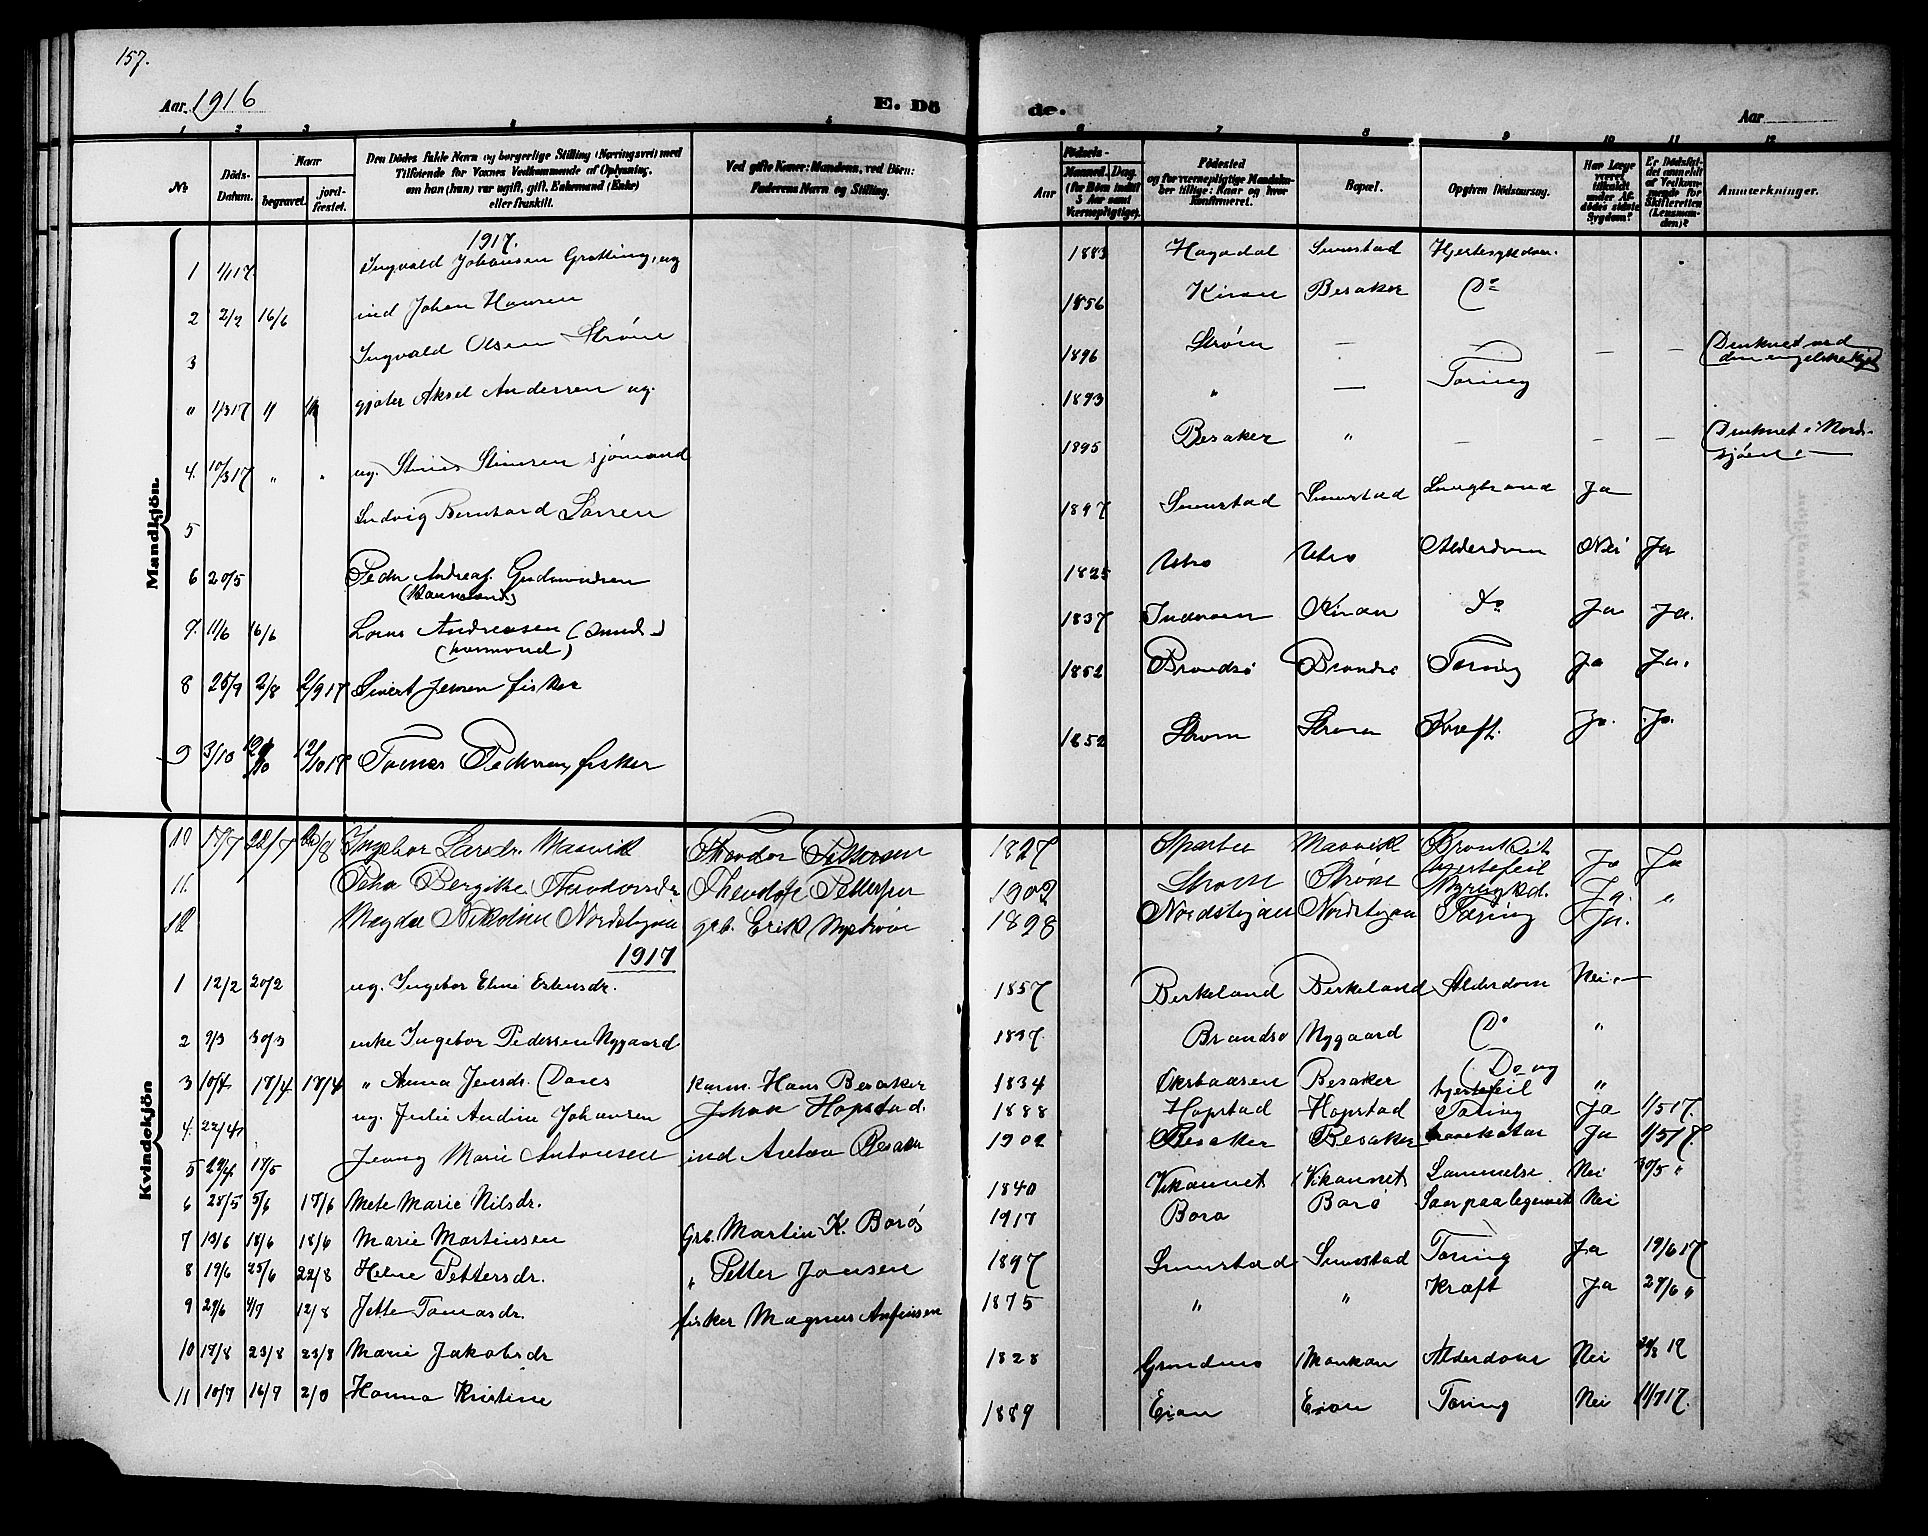 157.
Aar 1916 E. Dö de. Aar
1 2 3 4 5 6 7 8 9 10 11 12
No Döds-Datum. Naar begravet. jord-fæstet. Den Dödes fulde Navn og borgerlige Stilling (Næringsvei) med Tilføiende for Voxnes Vedkommende af Oplysning, om han (hun) var ugift, gift, Enkemand (Enke) eller fraskilt. Ved gifte Koner: Mandens, ved Börn: Faderens Navn og Stilling. Aar Födsels- Maaned. Dag. (for Börn indtil 5 Aar samt Værnepligtige). Födested og for værnepligtige Mandskaber tillige: Naar og hvor Konfirmeret. Bopæl. Opgiven Dödsaarsag. Har Læge været tilkaldt under Afdödes sidste Sygdom? Er Dödsfaldet anmeldt af Vedkommende for Skifteretten (Lensmanden)? Anmærkninger.
Mandkjön
1917.
1 1/1 17 Ingvald Johansen Grotting, ug 1883 Hagadal Sumstad Hjertesygdom.
2 2/2 16/6 ind Johan Hansen 1856 Kiran Besaker Do
3 Ingvald Olsen Strøm 1896 Strøm — — — — Druknet ved den engelske kyst
" 1/3 17 " gjøter Aksel Andersen ug. 1893 " — Tæring
4. 10/3 17 " " ug. Stinus Stinusen sjømand 1895 Besaker " — — — Druknet i Nordsjøen. —
5 Ludvig Bernhard Larsen 1897 Sumstad Sumstad Lungbrand Ja
6 20/5 Peder Andreas. Gudmundsen 1825 Utro Utro Alderdom Nei Ja
7. 11/6 16/6 Lorns Andreasen 1837 Inderøen Kiran Do Ja Ja.
8 25/7 2/8 2/9 17 Sivert Jensen fisker 1862 Brandsø Brandsø Tæring Ja Ja.
9 3/10 12/10 17 Tomas Pedersen, fisker 1852 Strøm Strøm Kræft. Ja. Ja.
Kvindekjön
10 17/7 22/7 20/8 Ingebor Larsdr. Masvik Theodor Pettersen 1827 Masvik Bronkit hjertefeil Ja Ja
11. Petra Bergitte Theodorsdr Theodor Pettersen 1902 Strøm Strøm Nyresykd. Ja. "
12 Magda Nikoline Nordskjaa grb. Erik Nystrøm 1898 Nordskjaa Nordskjaa Tæring Ja.
1917
1 12/2 20/2 ug. Ingebor Eline Estensdr. 1857 Berkeland Berkeland Alderdom Nei. —
2 9/3 30/3 enke Ingebor Pedersen Nygaard 1837. Brandsø Nygaard Do "
3 10/4 17/4 17/4 " Anna Jensdr. Karm. Hans Besaker 1834 Besaker Do og hjertefeil "
4. 22/4 ug. Julie Andine Johansen Johan Hopstad. 1888 Hopstad Hopstad Tæring Ja 1/5 17.
5 29/4 17/5 Jenny Marie Antonsen ind Anton Besaker 1902 Besaker Besaker Ja 1/5 17
6 28/5 5/6 17/6 Mete Marie Nilsdr. 1840 Vikannet Vikannet Lammelse Nei 30/5 "
7 13/6 18/6 18/6 Marie Martinsen Grb. Martin K. Borø 1917 Borø Borø Saar paa legemet Nei
8 19/6 25/6 22/8 Heline Pettersdr. " Petter Jonsen 1897 Sumstad Sumstad Tæring Ja 19/6 17
9 29/6 4/7 12/8 Jette Tomasdr. fisker Magnus Anfinsen 1875 " " Kræft Ja 27/6 "
10 17/8 23/8 23/8 Marie Jakobsdr 1828 Alderdom Nei
11 10/7 16/7 2/0 Hanna Kristine 1889 Eian Eian Tæring Nei 11/7 17.